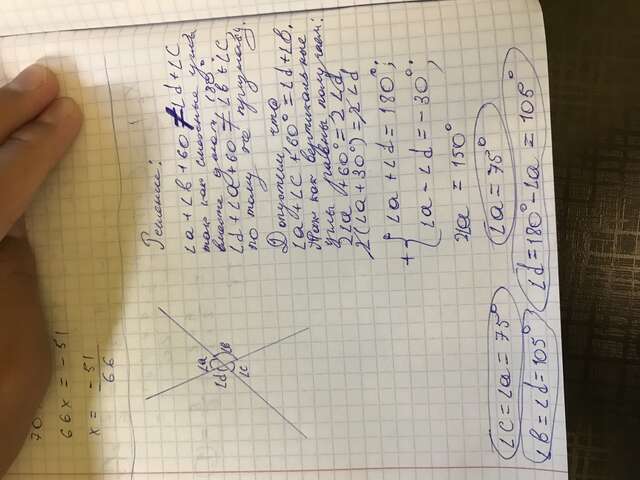 70
66x = -51
x = -51
66
Решение:
∠a + ∠B + 60 ≠ ∠d + ∠C
так как смежные углы
вместе дают 180°.
∠d + ∠a + 60 ≠ ∠B + ∠C
по тому же принципу.
Допустим, что
∠a + ∠C + 60° = ∠d + ∠B.
Так как вертикальные
углы равны получаем:
2∠a + 60° = 2∠d
2(∠a + 30°) = 2∠d
+ { ∠a + ∠d = 180°;
∠a - ∠d = -30°.
2∠a = 150°
∠a = 75°
∠d = 180° - ∠a = 105°
∠C = ∠a = 75°
∠B = ∠d = 105°
∠a
∠d
∠B
∠C